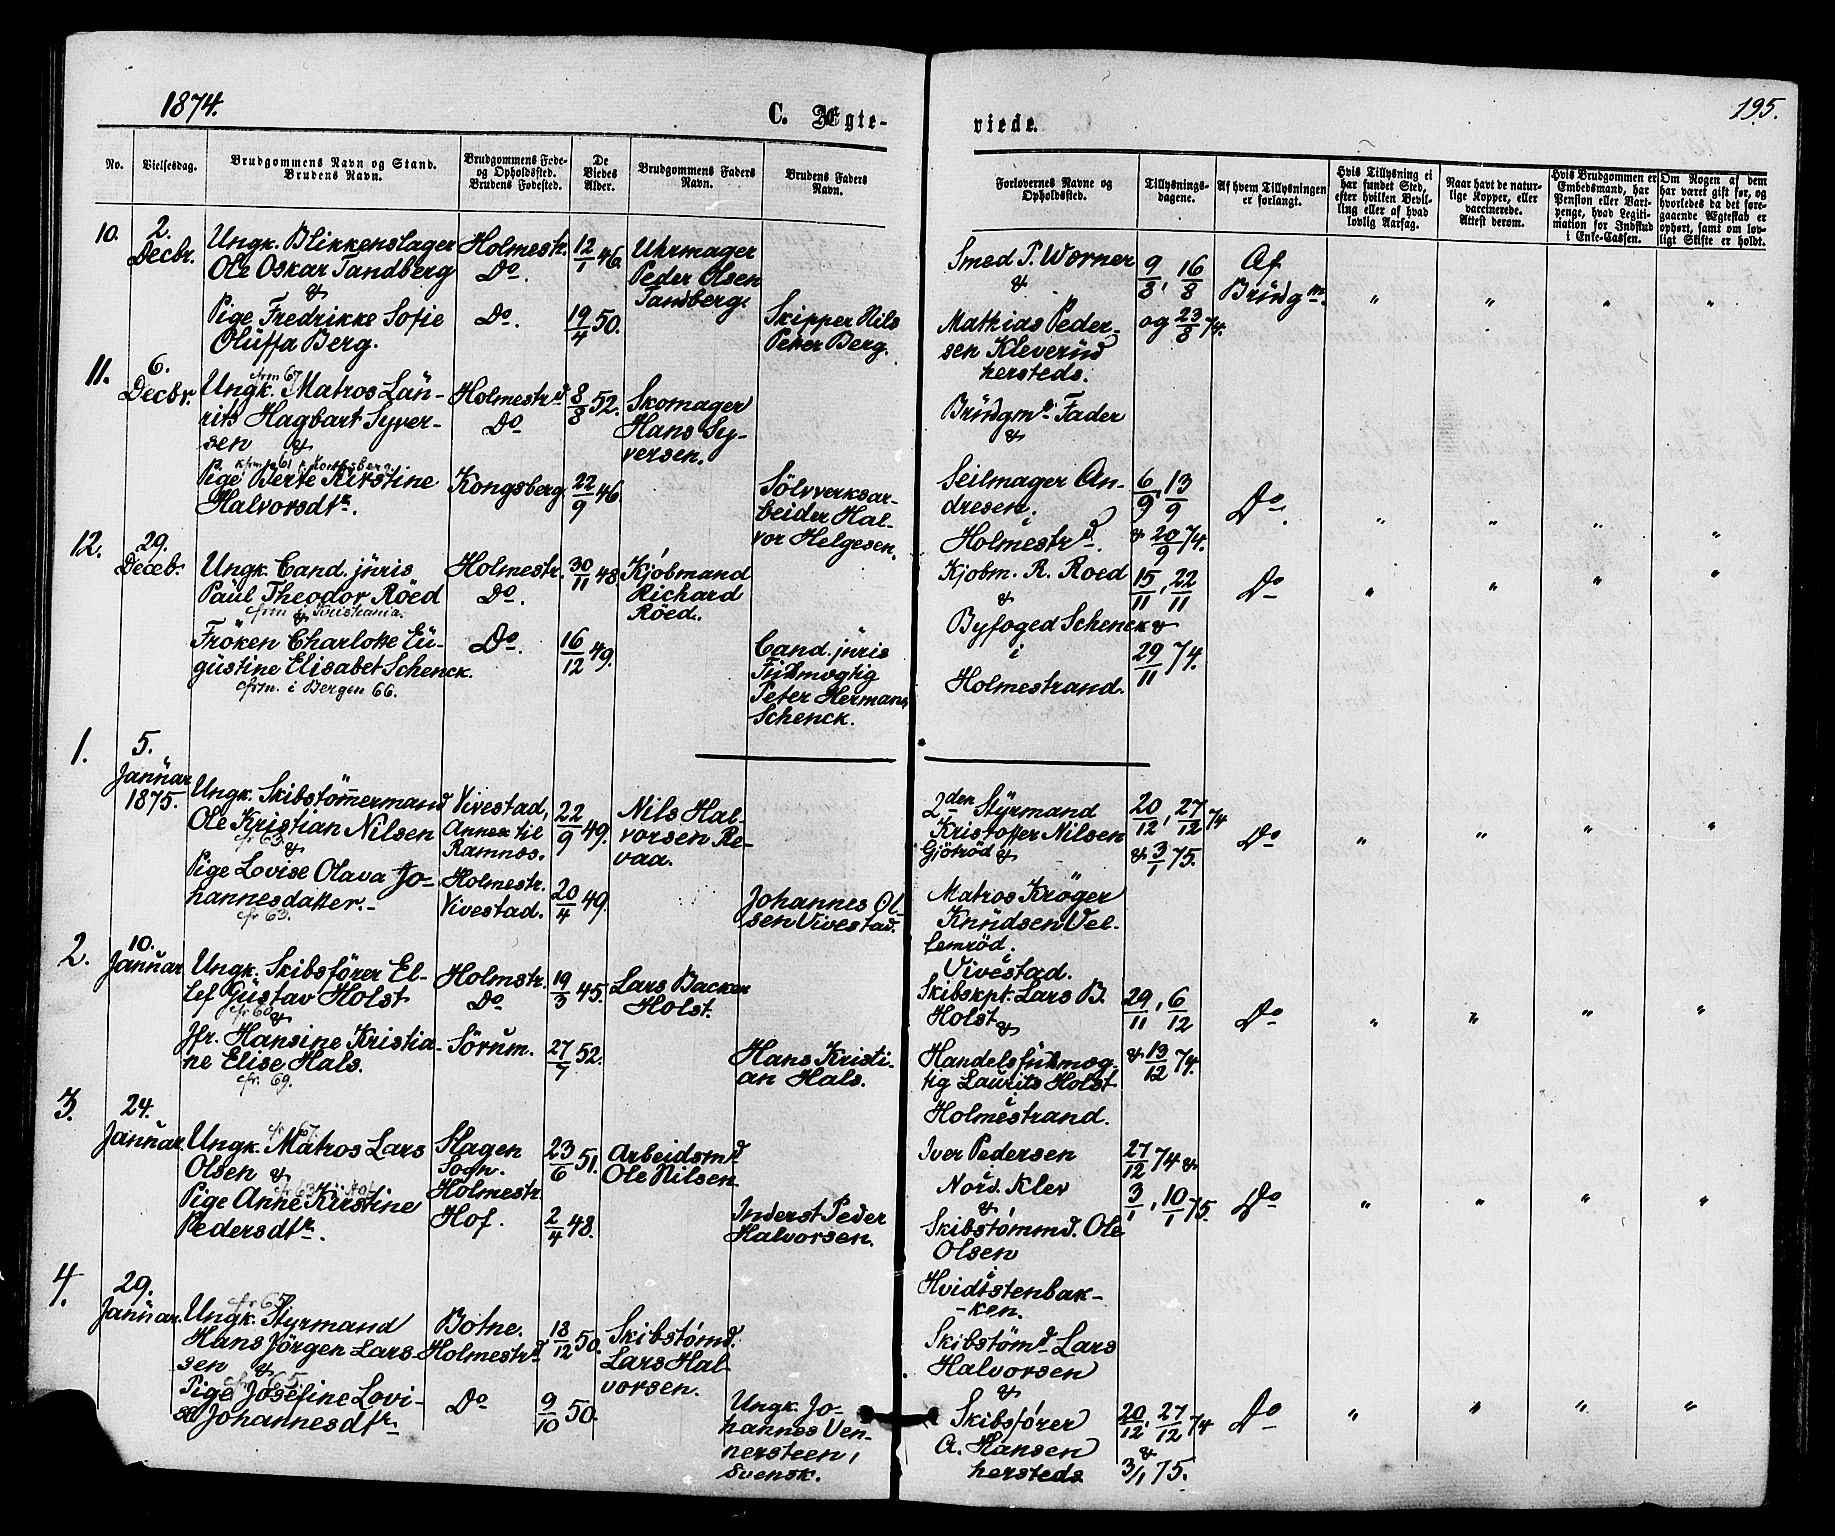 1874.
C. Ægte-
viede.
195.
No.
Vielsesdag.
Brudgommens Navn og Stand.
Brudens Navn.
Brudgommens Føde-
og Opholdssted.
Brudens Fødested.
De
Viedes
Alder.
Brudgommens Faders
Navn.
Brudens Faders
Navn.
Forlovernes Navne og
Opholdssted.
Tillysnings-
dagene.
Af hvem Tillysningen
er forlangt.
Hvis Tillysning ei
har fundet Sted,
efter hvilken Bevil-
ling eller af hvad
lovlig Aarsag.
Naar havt de natur-
lige Kopper, eller
vaccinerede.
Attest derom.
Hvis Brudgommen er
Embedsmand, har
Pension eller Vart-
penge, hvad Legiti-
mation for Indskud
i Enke-Cassen.
Om Nogen af dem
har været gift før, og
hvorledes da det fore-
gaaende Ægteskab er
ophørt, samt om lov-
ligt Skifte er holdt.
10.
2.
Decbr.
Ungk. Blikkenslager
Ole Oskar Tandberg
&
Pige Fredrikke Sofie
Oluffa Berg.
Holmestr.
Do.
Do.
12/1 46.
19/4 50.
Uhrmager
Peder Olsen
Tandberg.
Skipper Nils
Peter Berg.
Smed P. Worner
&
Mathias Peder-
sen Kleverud
hersteds.
9/8, 16/8
og 23/8 74.
Af
Brudgm.
" " " "
11.
6.
Decbr.
cfrm 67
Ungk. Matros Lau-
rits Hagbart Syver-
sen &
kfrm 61 p. Kongsberg.
Pige Berte Kirstine
Halvorsdtr.
Holmestrd
Do
Kongsberg
8/8 52.
22/9 46
Skomager
Hans Sy-
versen.
Sölvverksar-
beider Hal-
vor Helgesen.
Brudgms Fader
&
Seilmager An-
dresen.
i
Holmestrd.
6/9, 13/9
& 20/9 74.
Do.
" " " "
12.
29.
Deceb.
Ungk. Cand. juris
Paul Theodor Röed
cfrm i Kristiania.
&
Fröken Charlotte Eu-
gustine Elisabet Schenck.
cfrm. i Bergen 66.
Holmestr.
Do.
Do.
30/11 48
16/12 49.
Kjöbmand
Richard
Röed.
Cand. juris
Fuldmægtig
Peter Herman
Schenck.
Kjobm. R. Roed
&
Byfoged Schenck
i
Holmestrand.
15/11, 22/11
&
29/11 74.
Do
" " " "
1.
5.
Januar
1875.
Ungk. Skibstömmermand
Ole Kristian Nilsen
cfr 63 &
Pige Lovise Olava Jo-
hannesdatter.-
cfr 63.
Vivestad,
Annex til
Ramnæs.
Holmestr.
Vivestad.
22/9 49.
20/4 49.
Nils Hal-
vorsen Re-
vaa.
Johannes Ol-
sen Vivestad.
2den Styrmand
Kristoffer Nilsen
Gjötröd &
Matros Kröger
Knudsen Vel-
lemröd.
i
Vivestad.
20/12, 27/12 74
& 3/1 75.
Do
" " " "
2.
10.
Januar
Ungk. Skibsförer El-
lef Gustav Holst
cfr 60 &
Jfr. Hansine Kristia-
ne Elise Hals.
cfr. 69.
Holmstr.
Do
Sörum.
19/3 45.
27/7 52.
Lars Backer
Holst.
Hans Kristi-
an Hals.
Skibskpt. Lars B.
Holst &
Handelsfuldmæg-
tig Laurits Holst
i
Holmestrand.
29/11, 6/12
& 13/12 74.
Do
" " " "
3.
24.
Januar
cfr 67.
Ungk. Matros Lars
Olsen &
Pige Anne Kirstine
Pedersdtr.
Slagen
Sogn.
Holmestr.
Hof.
23/6 51.
2/4 48.
Arbeidsmd
Ole Nilsen
Inderst Peder
Halvorsen.
Iver Pedersen
i
Nord. Klev
&
Skibstömmd. Ole
Olsen
i
Hvidtstenbak-
-ken.
27/12 74 &
3/1, 10/1 75.
Do
" " " "
4.
29.
Januar.
cfr 65.
Ungk. Styrmand
Hans Jörgen Lars-
sen &
cfr 65.
Pige Josefine Lovi-
se Johannesdtr.
Botne.
Holmestrd
Do
18/12 50.
9/10 50.
Skibstömd.
Lars Hal-
vorsen.
Ungk. Jo-
hannes Ven-
nersteen,
Svensk.
Skibstömd Lars
Halvorsen
&
Skibsförer
A. Hansen
hersteds
20/12, 27/12 74
&
3/1 75.
Do
" " " "